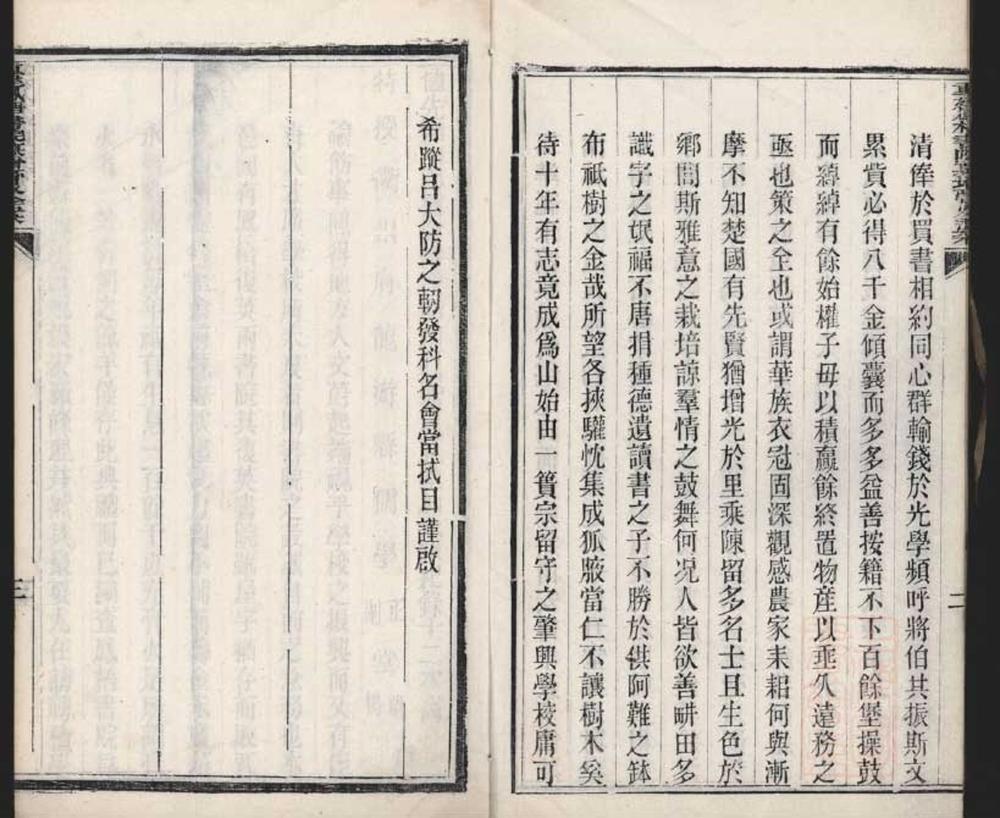 清俸於買書相約同心群輸錢於光學頻呼將伯其振斯文
累貲必得八千金傾囊而多多益善按籍不下百餘堡操鼓
而綽綽有餘始權子母以積贏餘終置物產以垂久遠務之
亟也策之全也或謂華族衣冠固深觀感農家耒耜何與漸
摩不知楚國有先賢猶增光於里乘陳留多名士且生色於
鄉閭斯雅意之栽培諒羣情之鼓舞何况人皆欲善畊田多
識字之氓福不唐捐種德遺讀書之子不勝於供阿難之鉢
布祇樹之金哉所望各挾驩忱集成狐腋當仁不讓樹木奚
待十年有志竟成爲山始由一簣宗留守之肇興學校庸可
二
希蹤呂大防之軔發科名會當拭目謹啟
三